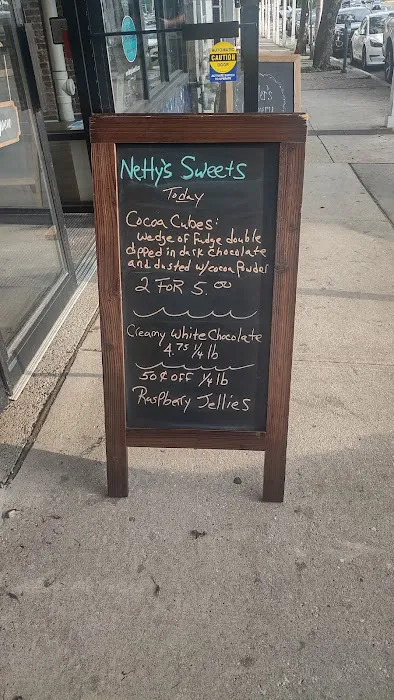 AUTOMATIC
CAUTION
DOOR
Netty's Sweets
Today
Cocoa Cubes:
wedge of fudge double
dipped in dark chocolate
and dusted w/cocoa powder
2 FOR 5.00
Creamy White Chocolate
4.75 1/4 lb
50¢ OFF 1/4 lb
Raspberry Jellies